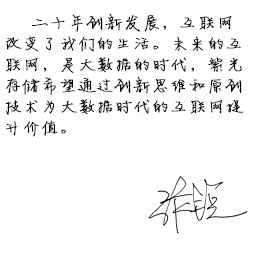 二十年创新发展，互联网
改变了我们的生活。未来的互
联网，是大数据的时代，紫光
存储希望通过创新思维和原创
技术为大数据时代的互联网提
升价值。